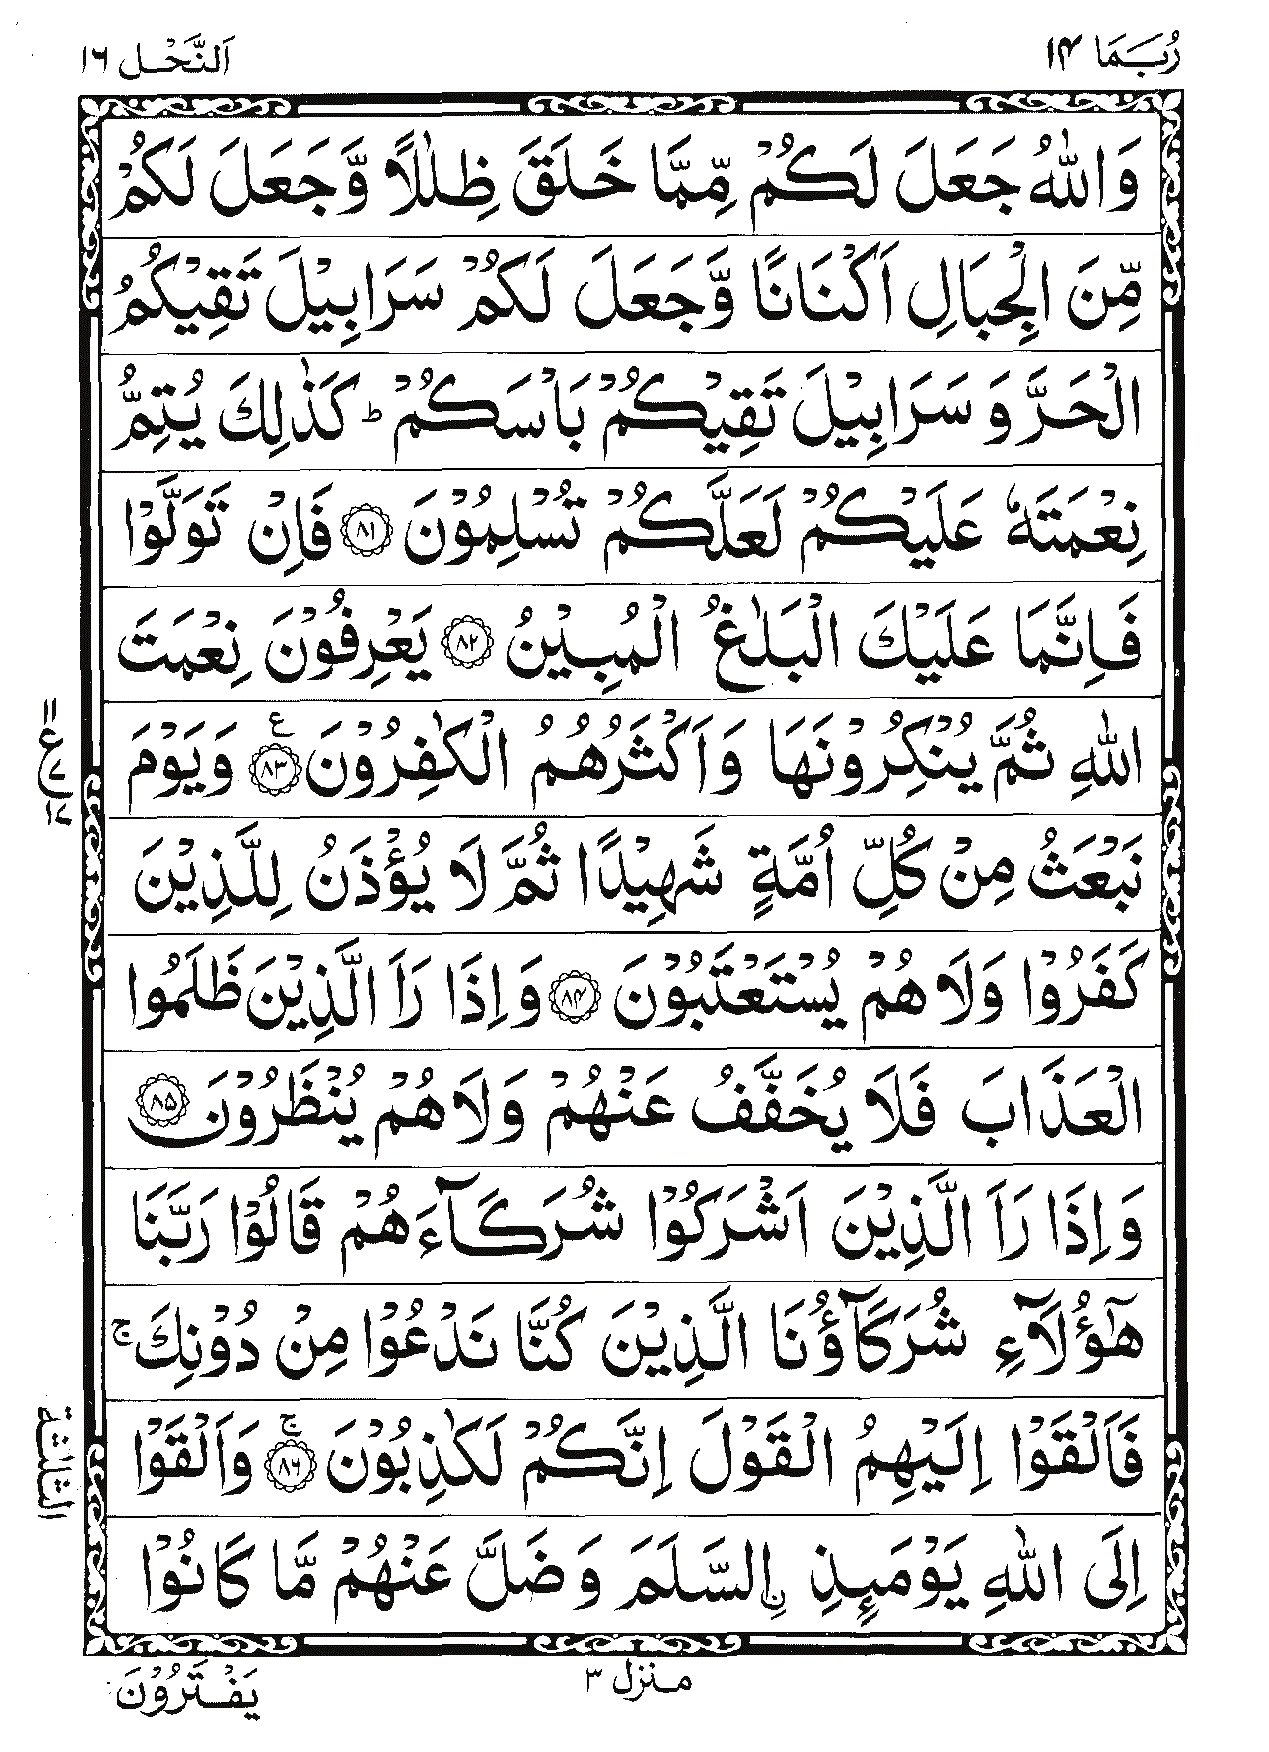 رُبَمَا ١٤
اَلنَّحْل ١٦
وَاللّٰهُ جَعَلَ لَكُمْ مِّمَّا خَلَقَ ظِلٰلًا وَّجَعَلَ لَكُمْ
مِّنَ الْجِبَالِ اَكْنَانًا وَّجَعَلَ لَكُمْ سَرَابِيْلَ تَقِيْكُمُ
الْحَرَّ وَسَرَابِيْلَ تَقِيْكُمْ بَاْسَكُمْ ؕ كَذٰلِكَ يُتِمُّ
نِعْمَتَهٗ عَلَيْكُمْ لَعَلَّكُمْ تُسْلِمُوْنَ ﴿۸۱﴾ فَاِنْ تَوَلَّوْا
فَاِنَّمَا عَلَيْكَ الْبَلٰغُ الْمُبِيْنُ ﴿۸۲﴾ يَعْرِفُوْنَ نِعْمَتَ
اللّٰهِ ثُمَّ يُنْكِرُوْنَهَا وَاَكْثَرُهُمُ الْكٰفِرُوْنَ ﴿۸۳﴾ ع وَيَوْمَ
نَبْعَثُ مِنْ كُلِّ اُمَّةٍ شَهِيْدًا ثُمَّ لَا يُؤْذَنُ لِلَّذِيْنَ
كَفَرُوْا وَلَا هُمْ يُسْتَعْتَبُوْنَ ﴿۸۴﴾ وَاِذَا رَاَ الَّذِيْنَ ظَلَمُوا
الْعَذَابَ فَلَا يُخَفَّفُ عَنْهُمْ وَلَا هُمْ يُنْظَرُوْنَ ﴿۸۵﴾
وَاِذَا رَاَ الَّذِيْنَ اَشْرَكُوْا شُرَكَآءَهُمْ قَالُوْا رَبَّنَا
هٰٓؤُلَآءِ شُرَكَآؤُنَا الَّذِيْنَ كُنَّا نَدْعُوْا مِنْ دُوْنِكَ ۚ
فَاَلْقَوْا اِلَيْهِمُ الْقَوْلَ اِنَّكُمْ لَكٰذِبُوْنَ ﴿۸۶﴾ ۚ وَاَلْقَوْا
اِلَى اللّٰهِ يَوْمَىِٕذِ ۨالسَّلَمَ وَضَلَّ عَنْهُمْ مَّا كَانُوْا
۱۱ ع ۷ ۱۷
الثلثة
منزل ٣
يَفْتَرُوْنَ